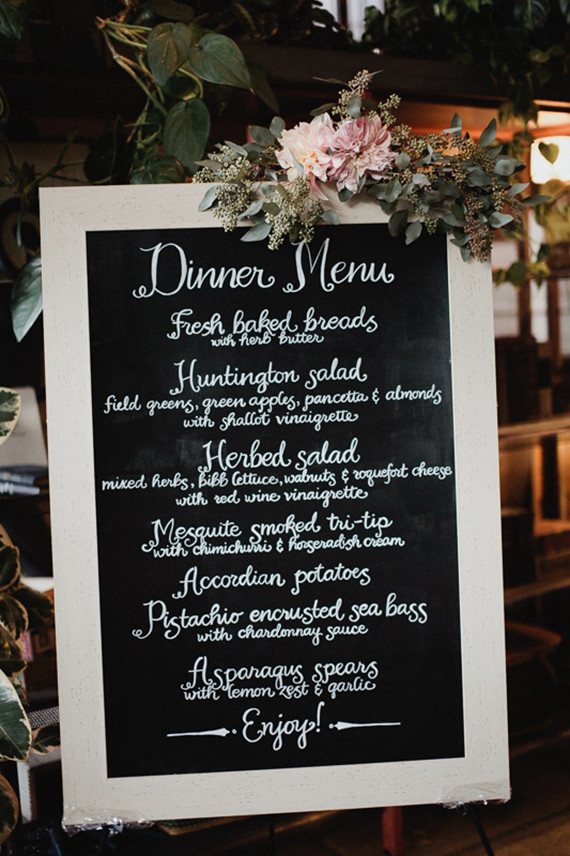 Dinner Menu
Fresh baked breads
with herb butter
Huntington salad
field greens, green apples, pancetta & almonds
with shallot vinaigrette
Herbed salad
mixed herbs, bibb lettuce, walnuts & roquefort cheese
with red wine vinaigrette
Mesquite smoked tri-tip
with chimichurri & horseradish cream
Accordian potatoes
Pistachio encrusted sea bass
with chardonnay sauce
Asparagus spears
with lemon zest & garlic
Enjoy!